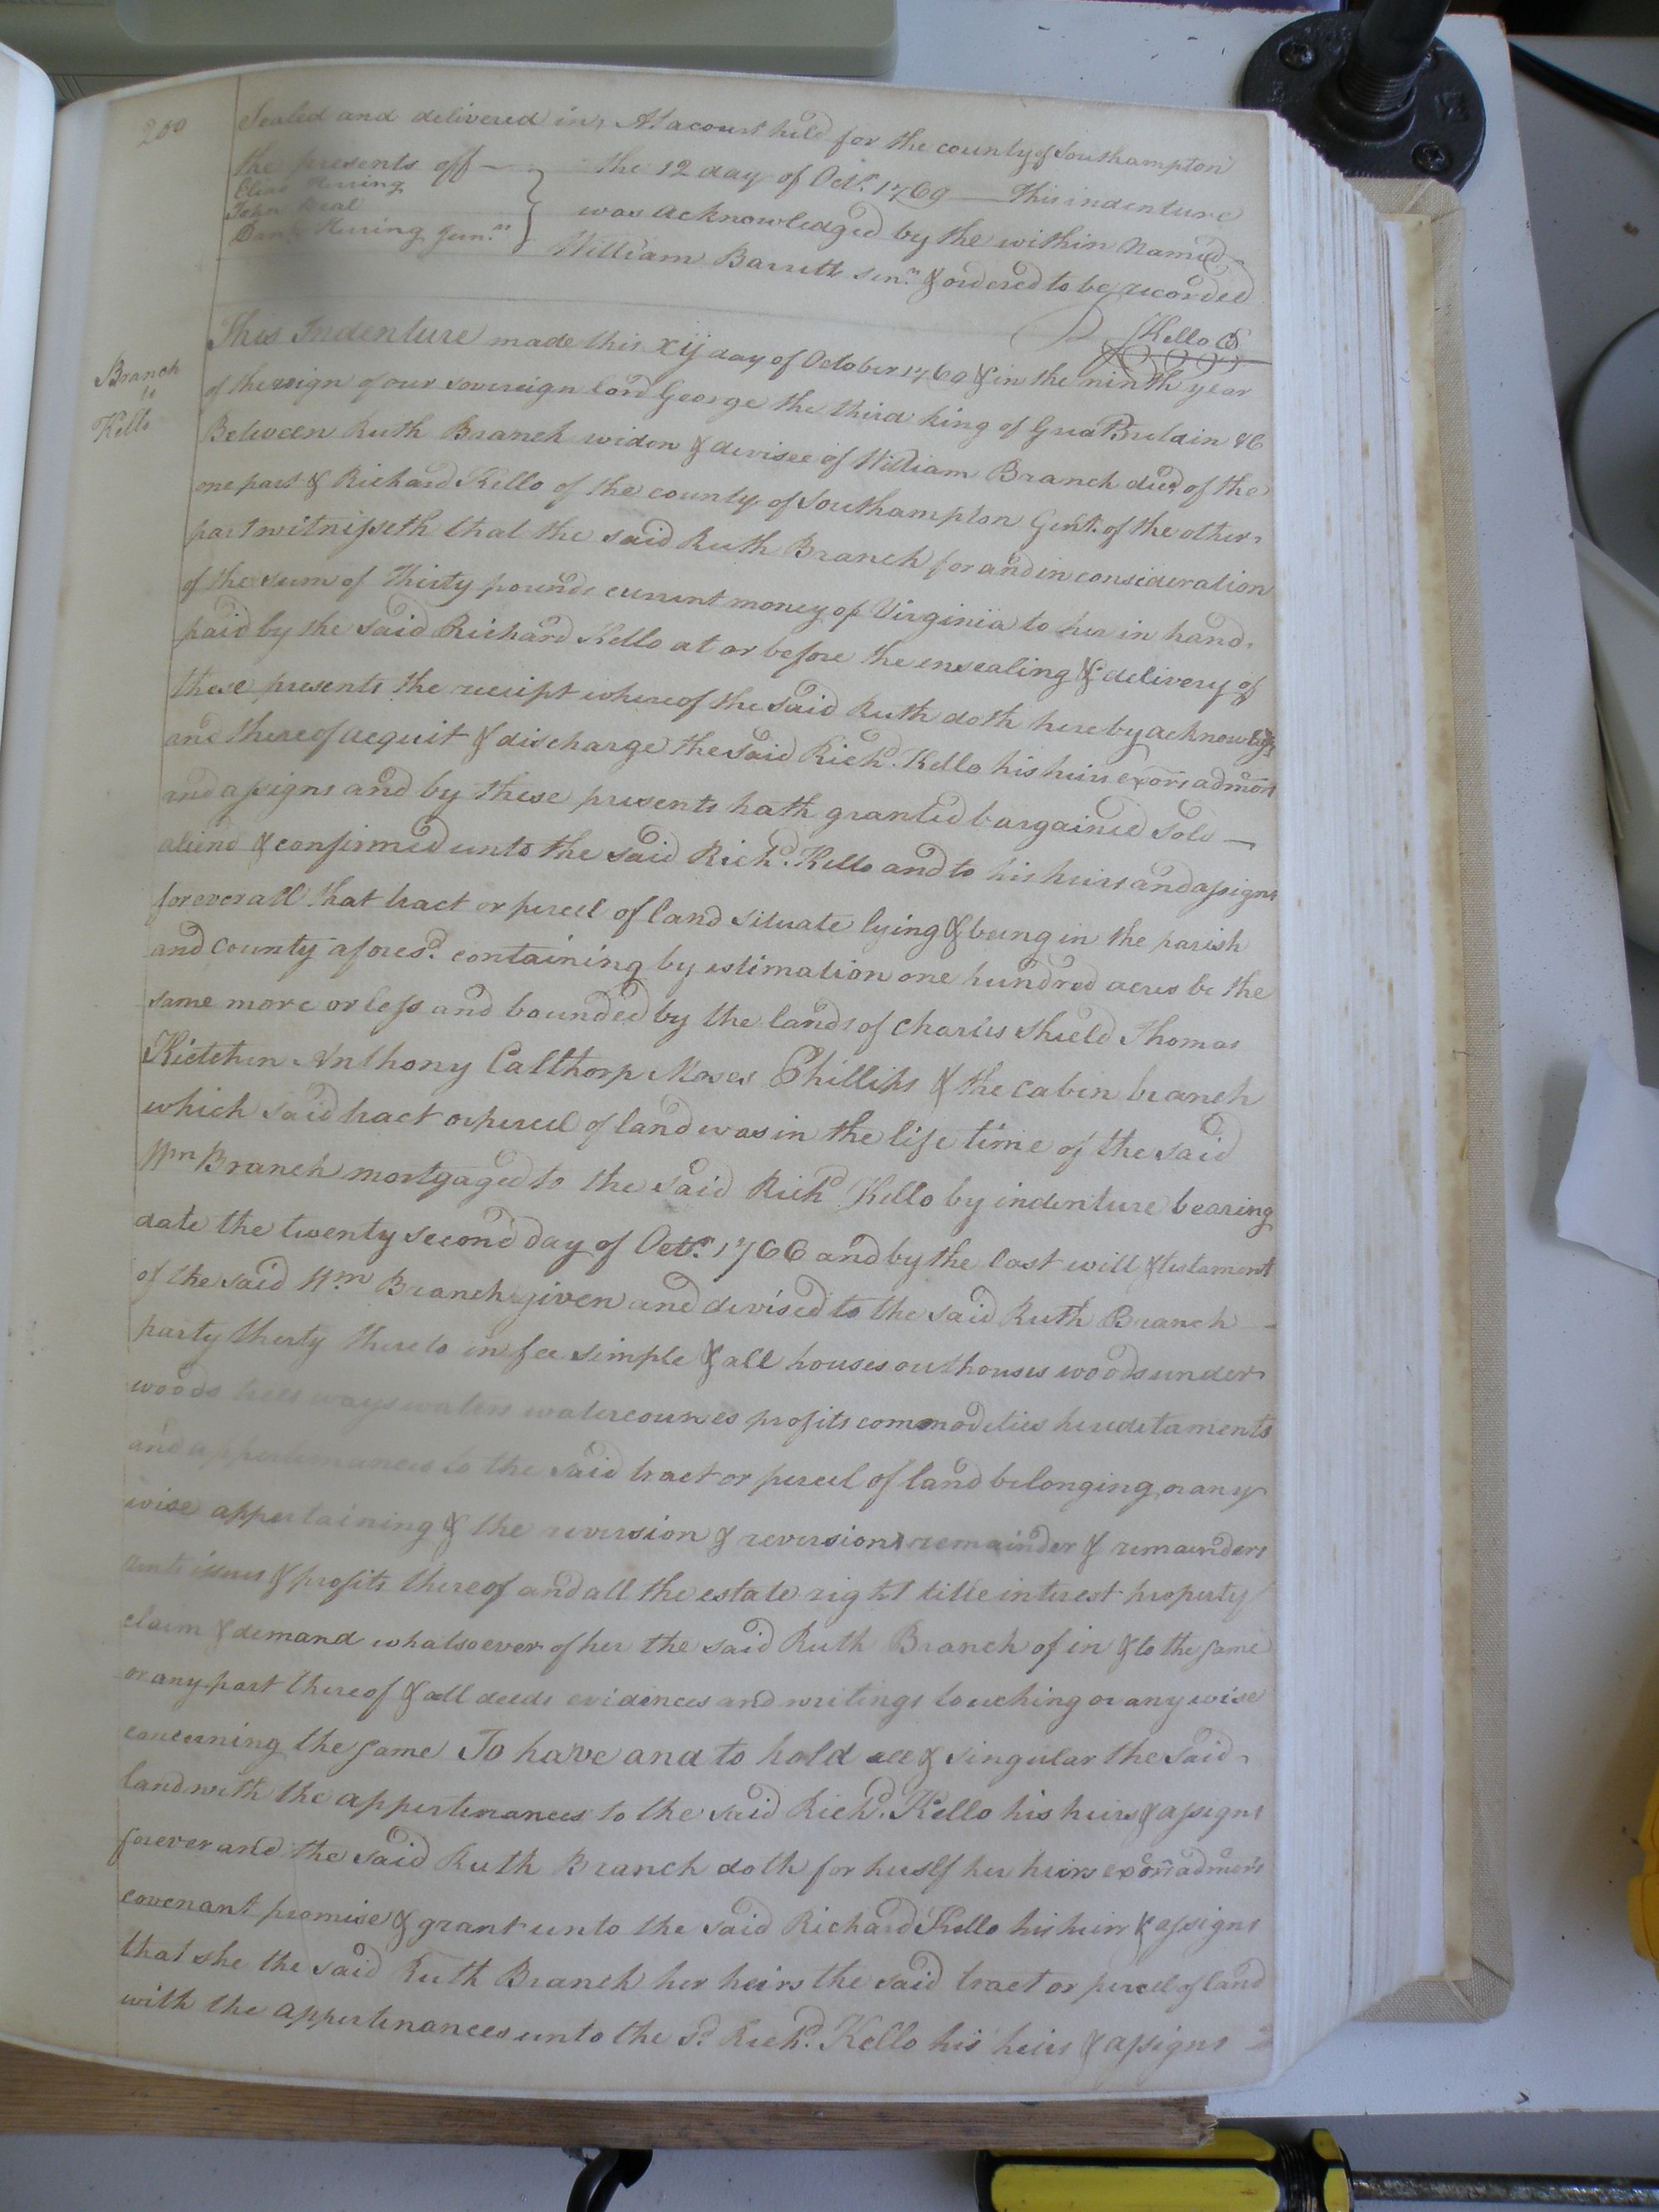 200
Sealed and delivered in, At a court held for the county of Southampton
the presents off — the 12 day of Octr. 1769 — this indenture
Elias Herring
John Beal
was acknowledged by the within Named
Danl. Herring Junr.
William Barrett senr. & ordered to be recorded
RKello CS
Branch
to
Kello
This Indenture made this xij day of October 1769 & in the ninth year
of the reign of our sovereign lord George the third king of Great Britain &c
Between Ruth Branch widow & devisee of William Branch decd. of the
one part & Richard Kello of the county of Southampton Gent. of the other
part witnesseth that the said Ruth Branch for and in consideration
of the sum of thirty pounds current money of Virginia to her in hand
paid by the said Richard Kello at or before the ensealing & delivery of
these presents the receipt whereof the said Ruth doth hereby acknowledge
and thereof acquit & discharge the said Richd. Kello his heirs exors admors
and assigns and by these presents hath granted bargained sold —
aliend & confirmed unto the said Richd. Kello and to his heirs and assigns
forever all that tract or percel of land situate lying & being in the parish
and county aforesd. containing by estimation one hundred acres be the
same more or less and bounded by the lands of Charles Shield Thomas
Kietchen Anthony Calthorp Moses Phillips & the cabin branch
which said tract or percel of land was in the life time of the said
Wm Branch mortgaged to the said Richd Kello by indenture bearing
date the twenty second day of Octr. 1766 and by the last will & testament
of the said Wm Branch given and devised to the said Ruth Branch —
party thereto in fee simple & all houses outhouses woods under
woods trees ways waters watercourses profits commodities hereditaments
and appertenances to the said tract or percel of land belonging or any
wise appertaining & the reversion & reversions remainder & remainders
rents issues & profits thereof and all the estate right title interest property
claim & demand whatsoever of her the said Ruth Branch of in & to the same
or any part thereof & all deeds evidences and writings touching or any wise
concerning the same To have and to hold all & singular the said
land with the appertenances to the said Richd. Kello his heirs & assigns
forever and the said Ruth Branch doth for herself her heirs exors admors
covenant promise & grant unto the said Richard Kello his heirs & assigns
that she the said Ruth Branch her heirs the said tract or percel of land
with the appertenances unto the sd. Richd. Kello his heirs & assigns